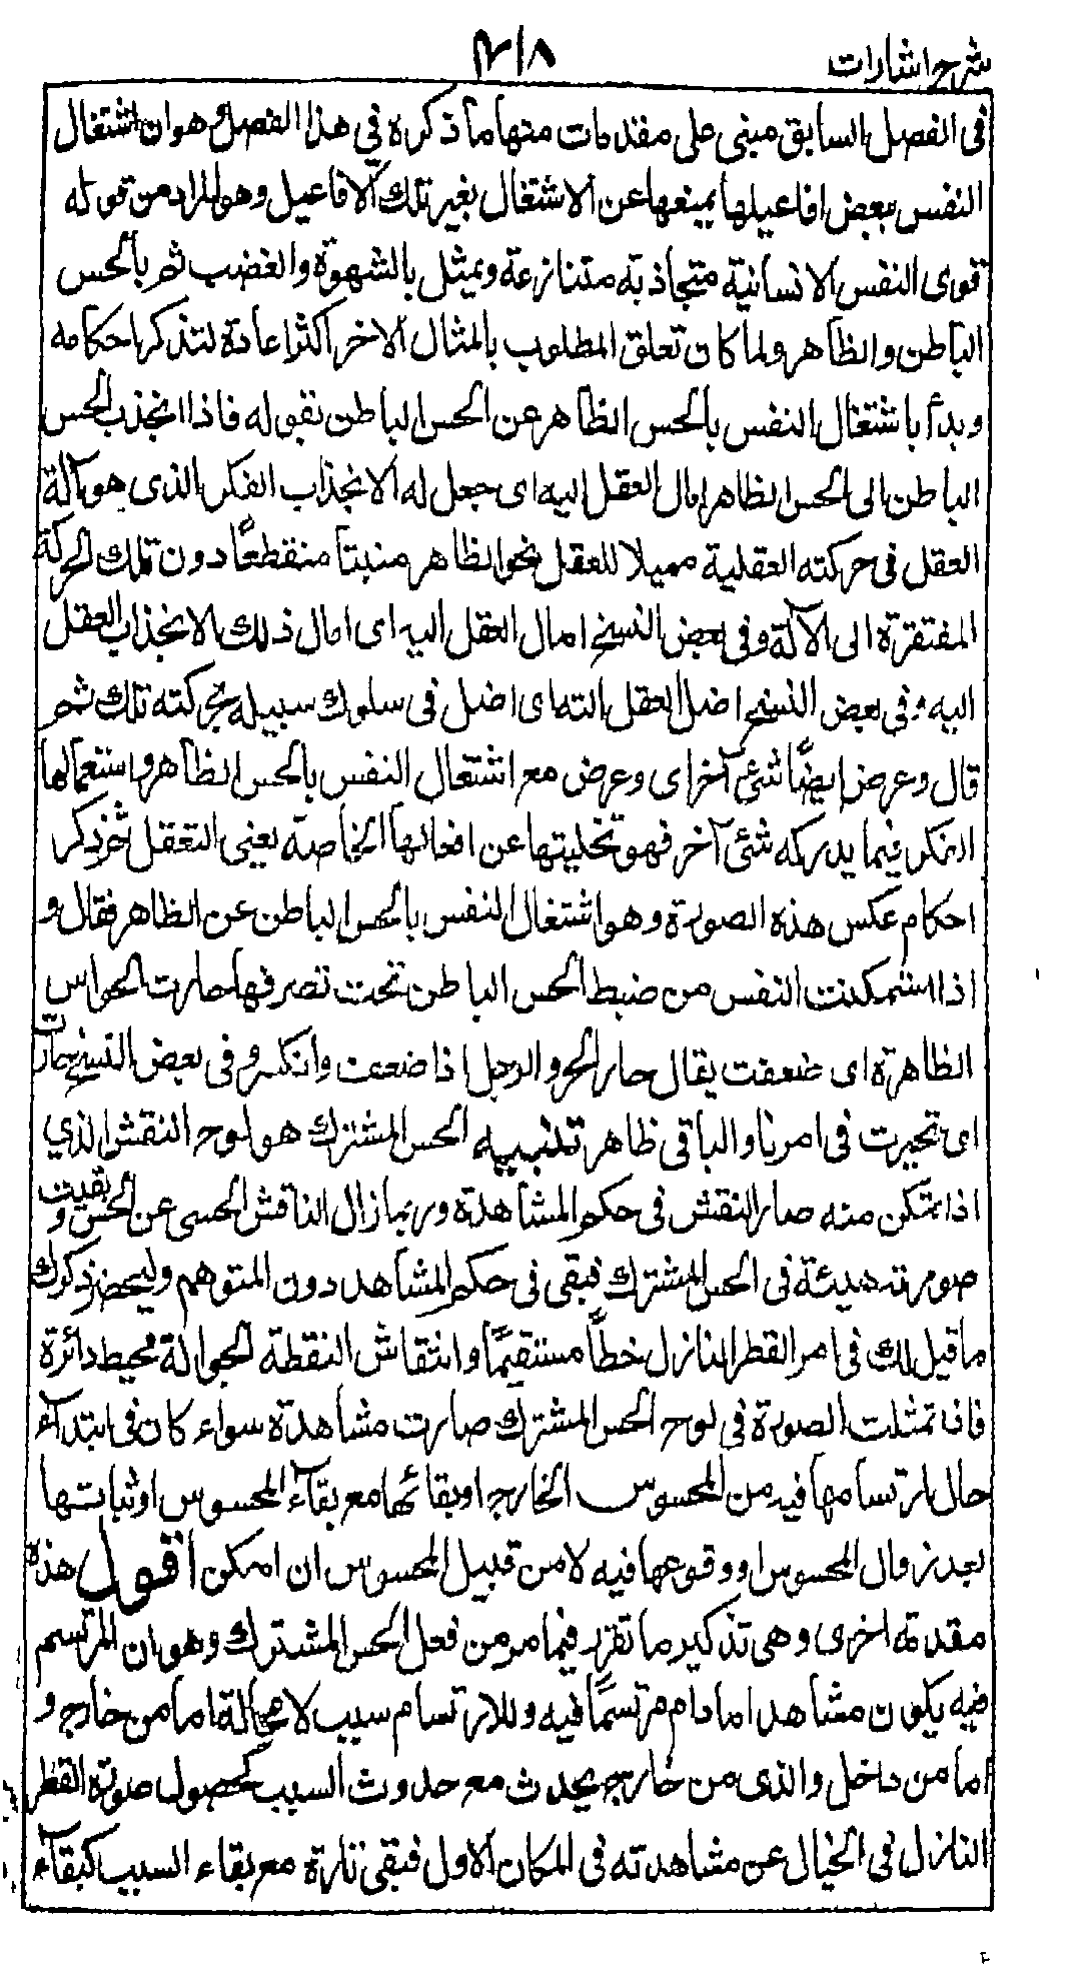 شرح اشارات
٢١٨
فى الفصل السابق مبنى على مقدمات منها ما ذكره فى هذا الفصل وهو ان اشتغال
النفس ببعض افاعيلها يمنعها عن الاشتغال بغير تلك الافاعيل وهو المراد من قوله
قوى النفس الانسانية متجاذبة متنازعة ويمثل بالشهوة والغضب ثم بالحس
الباطن والظاهر ولما كان تعلق المطلوب بالمثال الاخر اكثر اعاده لتذكر احكامه
وبدأ باشتغال النفس بالحس الظاهر عن الحس الباطن بقوله فاذا انجذب الحس
الباطن الى الحس الظاهر امال العقل اليه اى جعل له الانجذاب الفكر الذى هو آلة
العقل فى حركته العقلية مميلا للعقل نحو الظاهر منبتا منقطعًا دون تلك الحركة
المفتقرة الى الآلة وفى بعض النسخ امال العقل اليه اى امال ذلك الانجذاب العقل
اليه وفى بعض النسخ اضل العقل آلته اى اضل فى سلوك سبيله بحركته تلك ثم
قال وعرض ايضًا شئ آخر اى وعرض مع اشتغال النفس بالحس الظاهر واستعمالها
الفكر فيما يدركه شئ آخر فهو تخليتها عن افعالها الخاصة يعنى التعقل ثم ذكر
احكام عكس هذه الصورة وهو اشتغال النفس بالحس الباطن عن الظاهر فقال و
اذا استمكنت النفس من ضبط الحس الباطن تحت تصرفها حارت الحواس
الظاهرة اى ضعفت يقال حار الحر والرجل اذا ضعف وانكسر وفى بعض النسخ حارت
اى تحيرت فى امرنا والباقى ظاهر تنبيه الحس المشترك هو لوح النقش الذي
اذا تمكن منه صار النقش فى حكم المشاهدة وربما زال الناقش الحسى عن الحس و بقيت
صورته هيئة فى الحس المشترك فبقى فى حكم المشاهد دون المتوهم وليحضر ذكرك
ما قيل لك فى امر القطر النازل خطًّا مستقيمًا وانتقاش النقطة الجوالة محيط دائرة
فاذا تمثلت الصورة فى لوح الحس المشترك صارت مشاهدة سواء كان فى ابتداء
حال ارتسامها فيه من المحسوس الخارج او بقائها مع بقاء المحسوس او ثباتها
بعد زوال المحسوس او وقوعها فيه لا من قبيل المحسوس ان امكن اقول هذه
مقدمة اخرى وهى تذكير ما تقرر فيما مر من فعل الحس المشترك وهو ان المرتسم
فيه يكون مشاهدا ما دام مرتسمًا فيه وللارتسام سبب لا محالة اما من خارج و
اما من داخل والذى من خارج يحدث مع حدوث السبب كحصول صورة القطر
النازل فى الخيال عن مشاهدته فى المكان الاول فبقى تارة مع بقاء السبب كبقاء